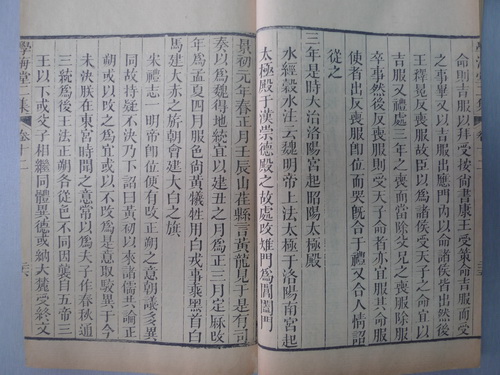 命則吉服以拜受按尚書康王受策命吉服而受
之事畢又以吉服出應門內以命諸侯皆出然後
王釋冕反喪服故臣以為諸侯受天子之命宜以
吉服又禮處三年之喪而當除父兄之喪服除服
卒事然後反喪服則受天子命者亦宜服其命服
使者出反喪服卽位而哭旣合于禮又合人情詔
從之
三年是時大治洛陽宮起昭陽太極殿
水經穀水注云魏明帝上法太極于洛陽南宮起
太極殿于漢崇德殿之故處改雉門為閶闔門
景初元年春正月壬辰山茌縣言黃龍見于是有司
奏以為魏得地統宜以建丑之月為正三月定厤改
年為孟夏四月服色尚黃犧牲用白戎事乘黑首白
馬建大赤之旂朝會建大白之旗
宋禮志一明帝卽位便有改正朔之意朝議多異
同故持疑不決乃下詔曰黃初以來諸儒共論正
朔或以改之為宜或以不改為是意取駮異于今
未決朕在東宮時聞之意常以為夫子作春秋通
三統為後王法正朔各從色不同因襲自五帝三
王以下或父子相繼同體異德或納大麓受終文
學海堂二集 卷十二